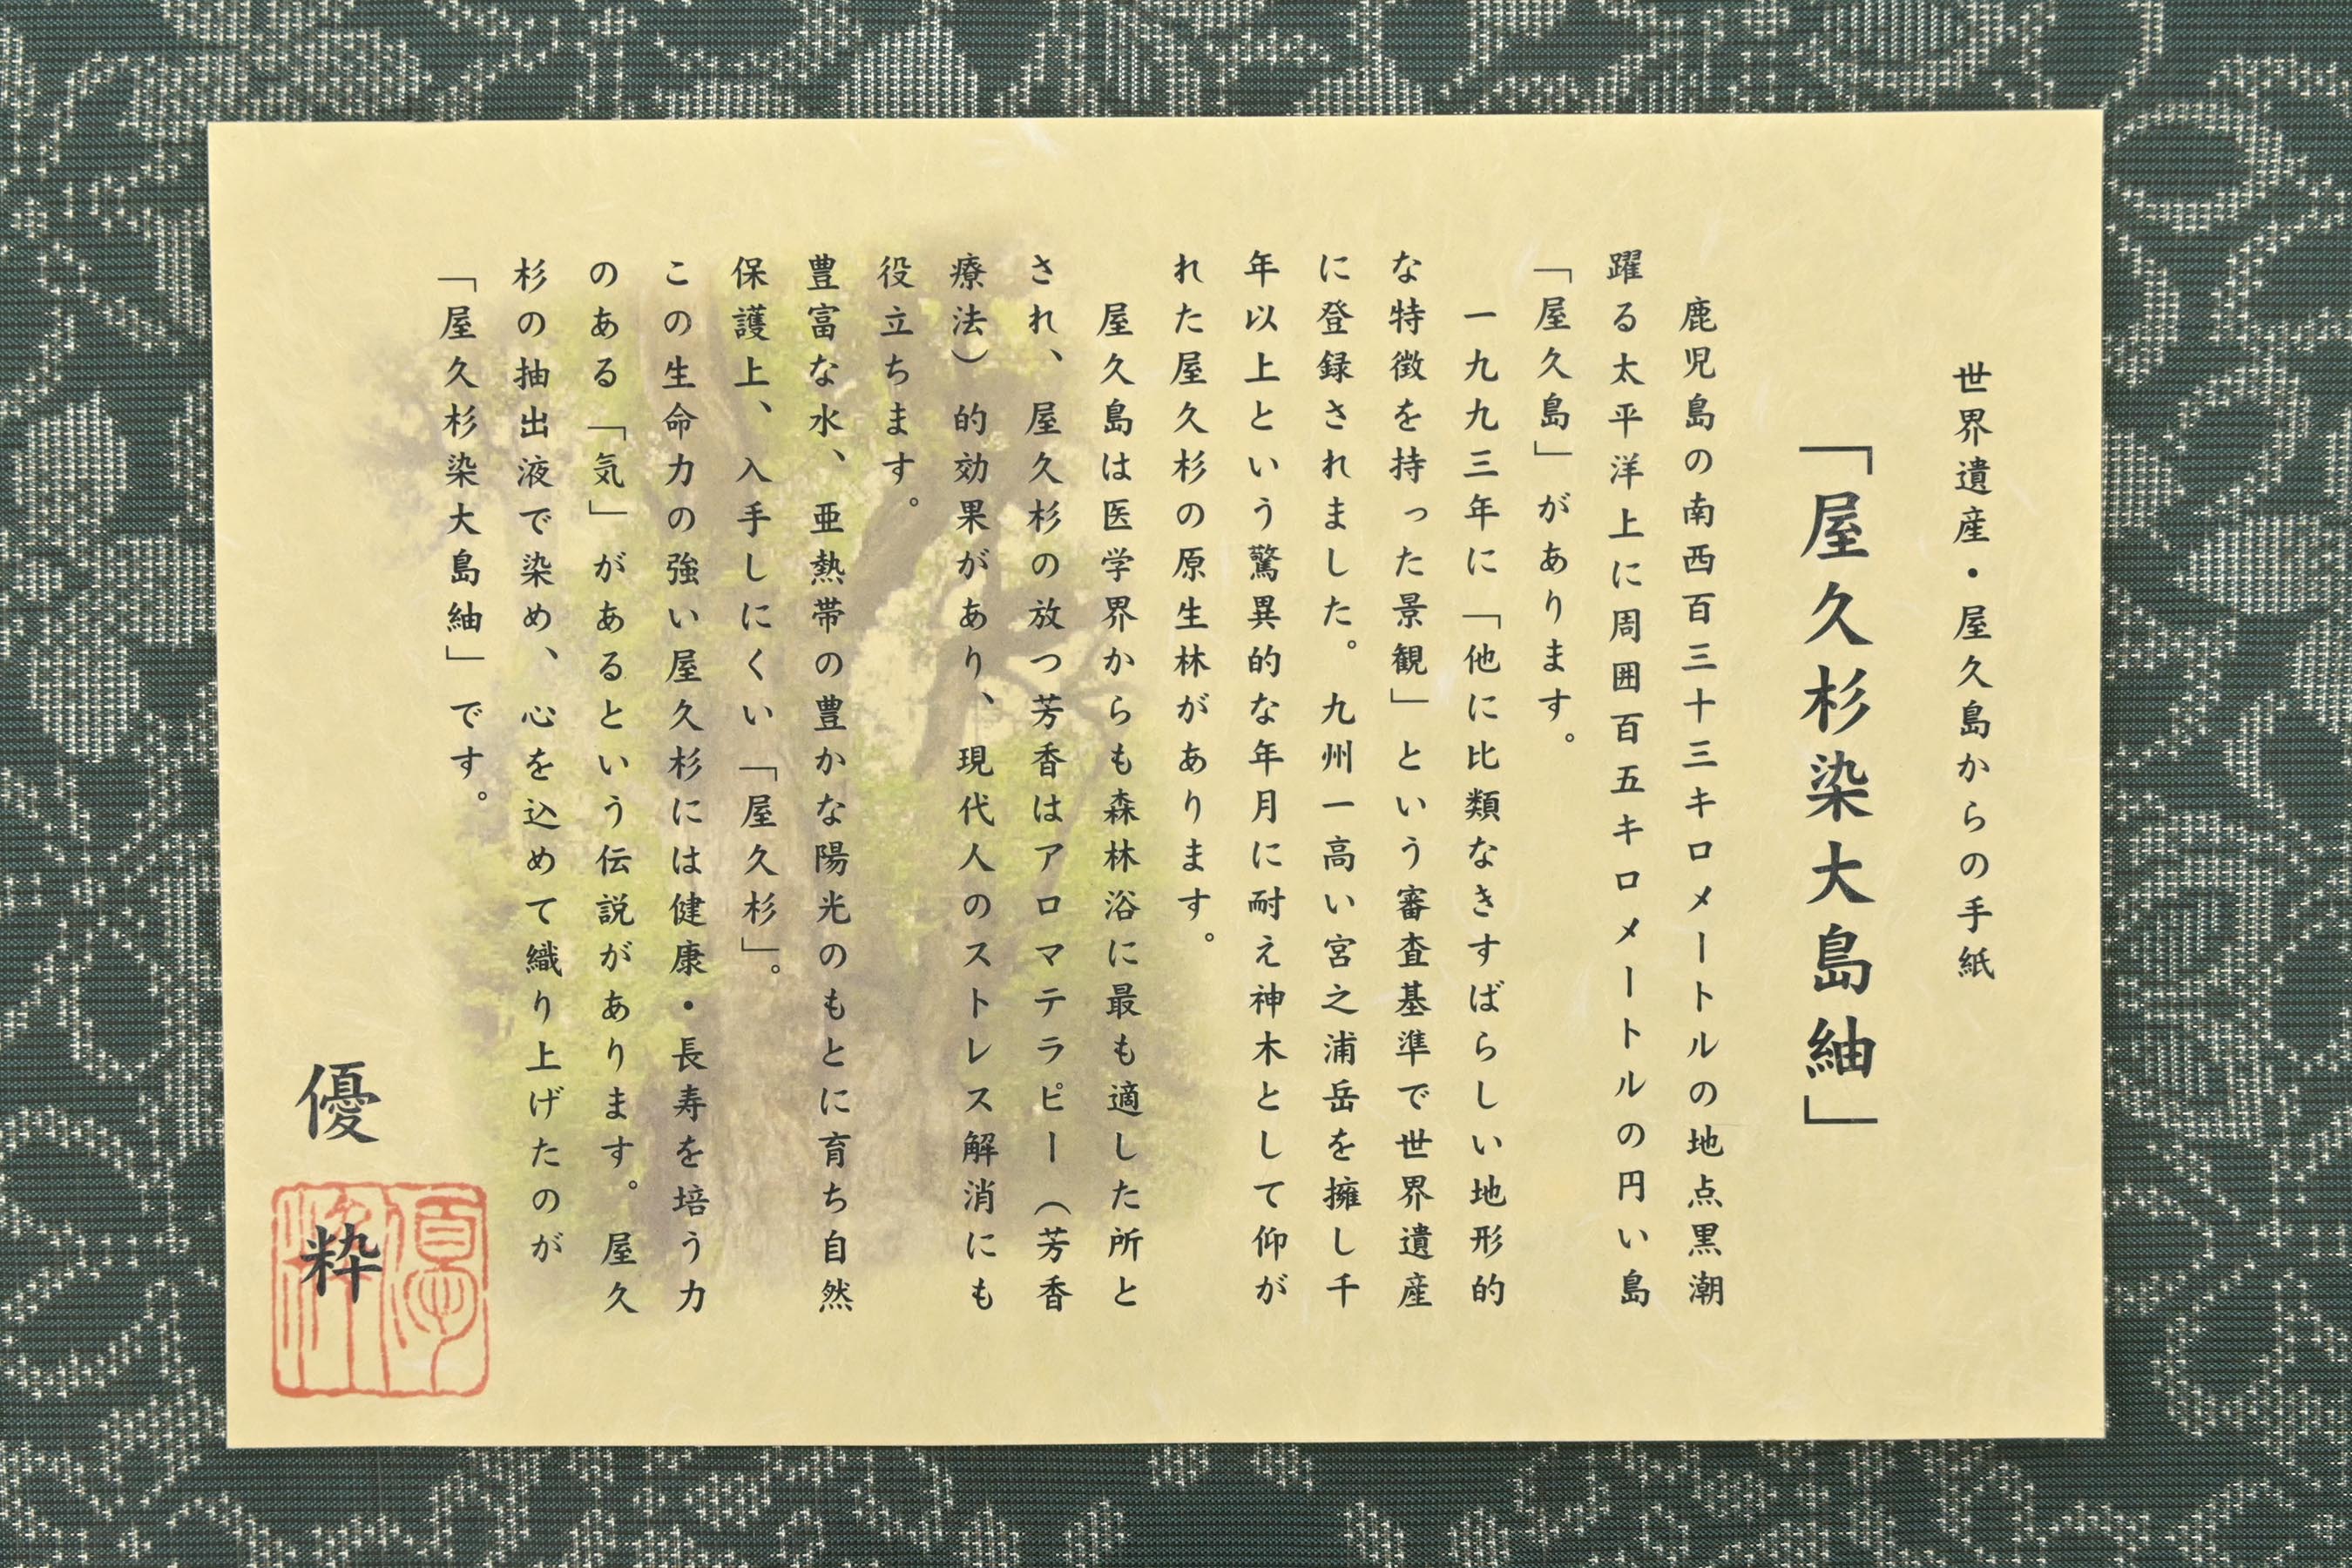 世界遺産・屋久島からの手紙
「屋久杉染大島紬」
鹿児島の南西百三十三キロメートルの地点黒潮
躍る太平洋上に周囲百五キロメートルの円い島
「屋久島」があります。
一九九三年に「他に比類なきすばらしい地形的
な特徴を持った景観」という審査基準で世界遺産
に登録されました。九州一高い宮之浦岳を擁し千
年以上という驚異的な年月に耐え神木として仰が
れた屋久杉の原生林があります。
屋久島は医学界からも森林浴に最も適した所と
され、屋久杉の放つ芳香はアロマテラピー（芳香
療法）的効果があり、現代人のストレス解消にも
役立ちます。
豊富な水、亜熱帯の豊かな陽光のもとに育ち自然
保護上、入手しにくい「屋久杉」。
この生命力の強い屋久杉には健康・長寿を培う力
のある「気」があるという伝説があります。屋久
杉の抽出液で染め、心を込めて織り上げたのが
「屋久杉染大島紬」です。
優粋
優粋